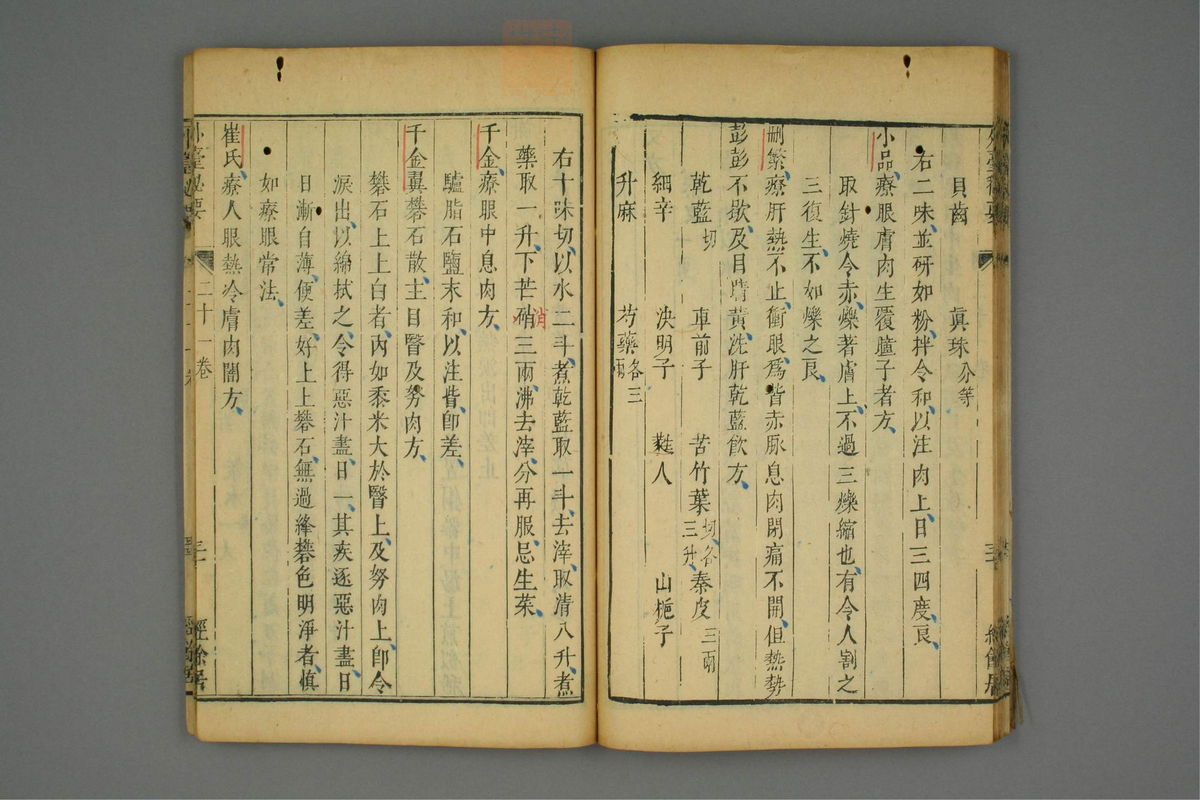 貝齒　眞珠分等
右二味並研如粉拌令和以注肉上日三四度良
小品療眼膚肉生覆瞳子者方
取針燒令赤爍著膚上不過三爍縮也有令人割之
三復生不如爍之良
刪繁療肝熱不止衝眼爲眥赤脉息肉閉痛不開但熱勢
彭彭不歇及目睛黃洗肝乾藍飮方
乾藍切　車前子　苦竹葉切各三升　秦皮三兩
細辛　決明子　蕤人　山梔子
升麻　芍藥各三兩
右十味切以水二斗煮乾藍取一斗去滓取清八升煮
藥取一升下芒硝三兩沸去滓分再服忌生菜
消
千金療眼中息肉方
驢脂石鹽末和以注眥卽差
千金翼礬石散主目瞖及努肉方
礬石上上白者內如黍米大於瞖上及努肉上卽令
淚出以綿拭之令得惡汁盡日一其疾逐惡汁盡日
日漸自薄便差好上上礬石無過絳礬色明淨者愼
如療眼常法
崔氏療人眼熱冷膚肉闇方
外臺秘要　二十一卷　三　經餘居